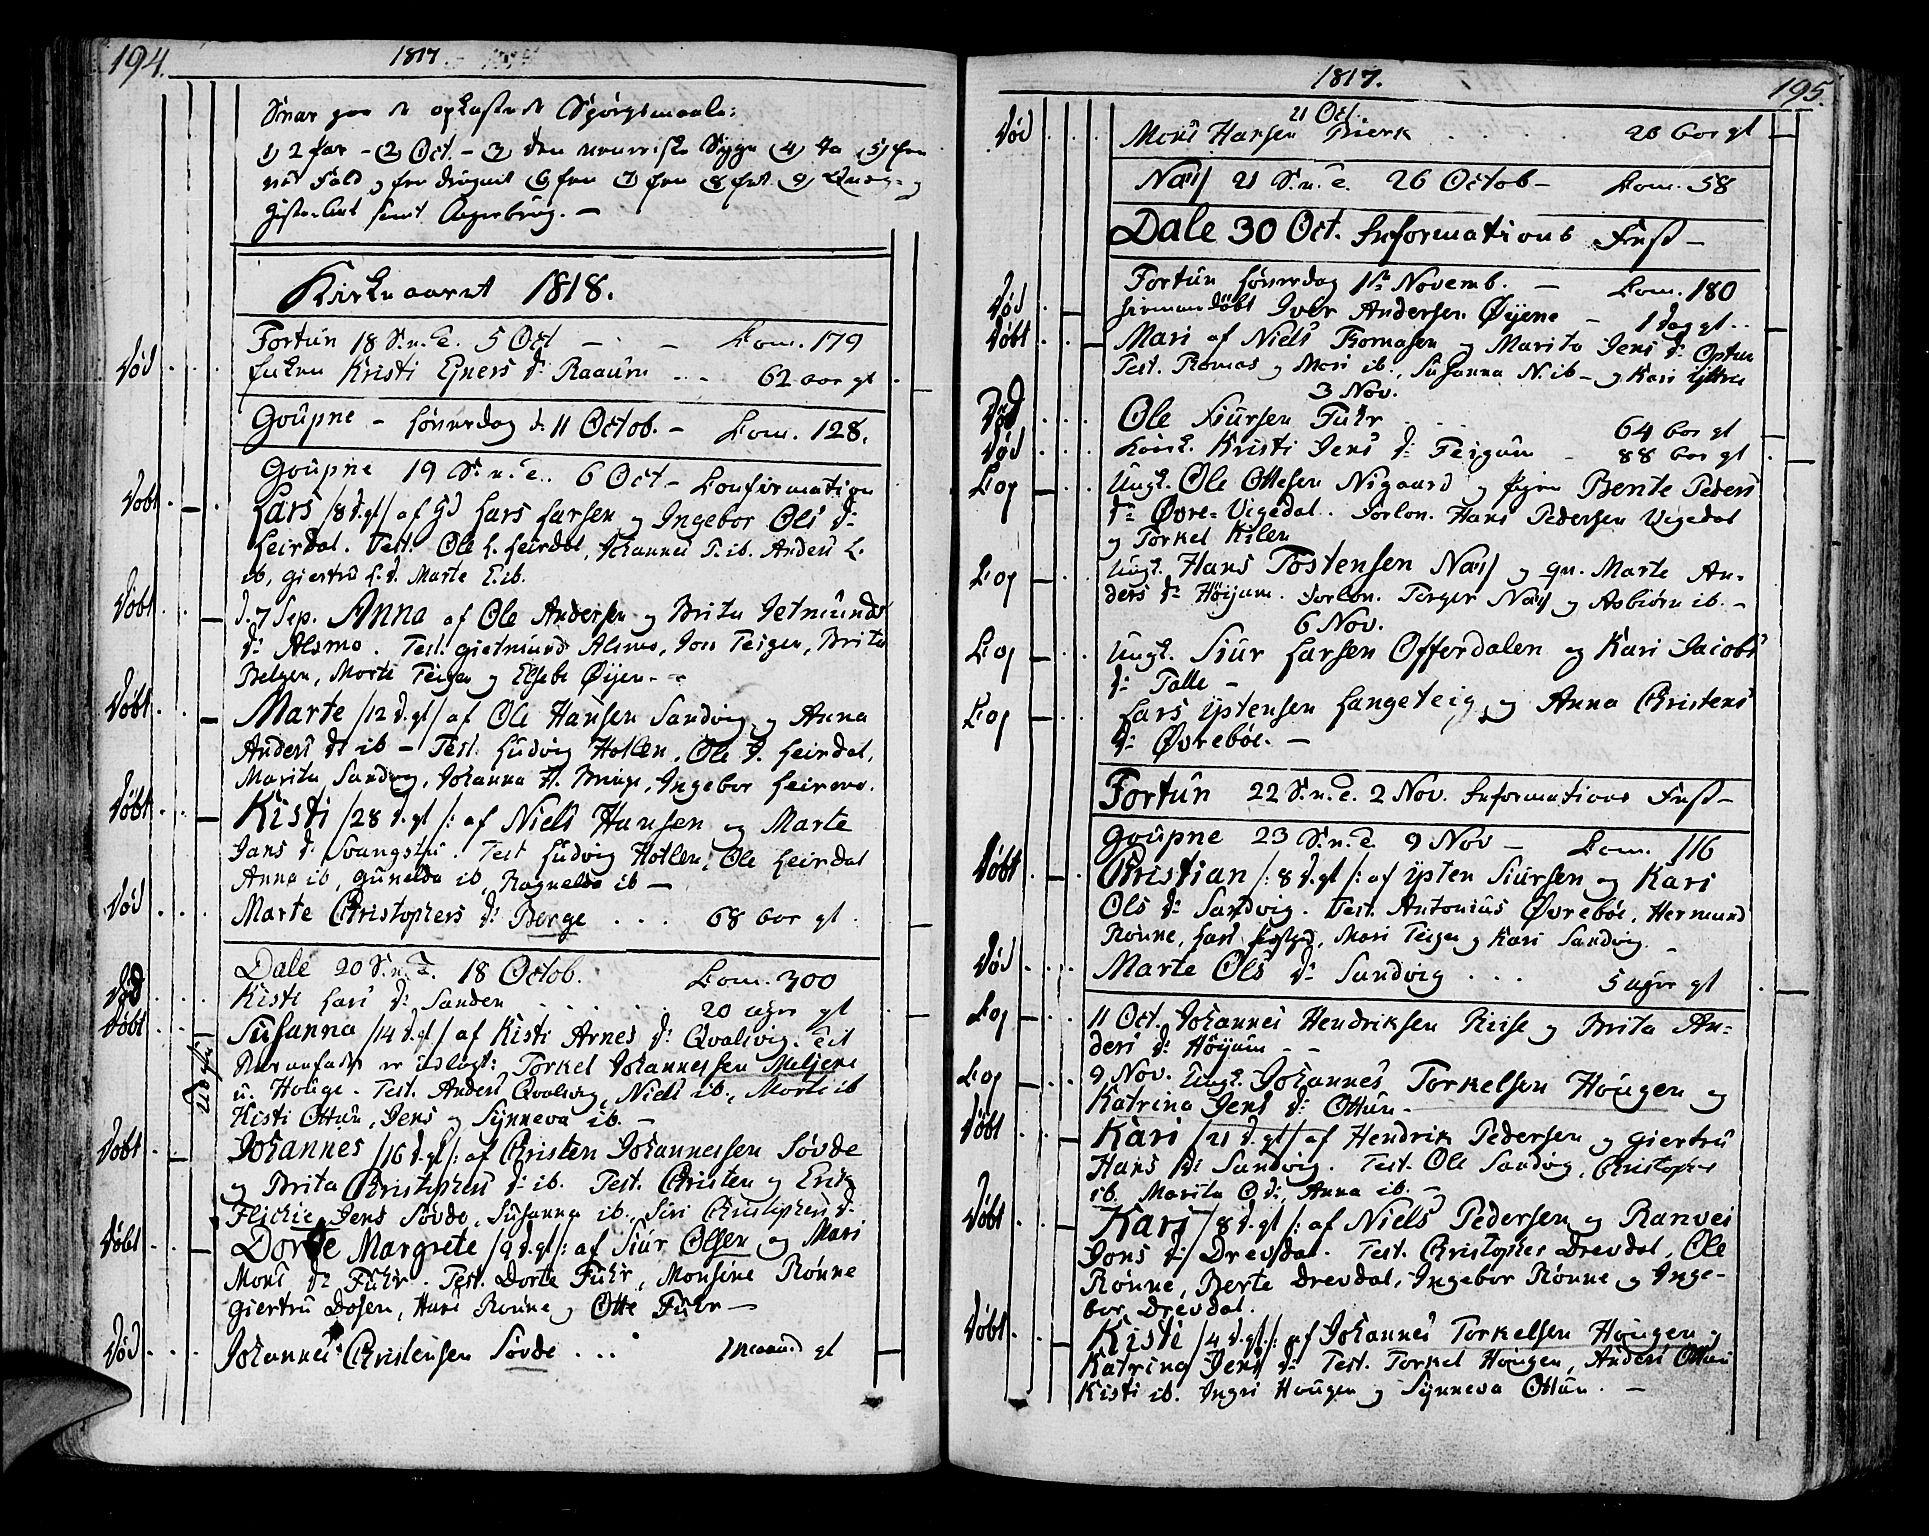 194.
1817.
Svar paa de opkastede Spørgsmaale:
1) 2 par - 2) Oct. - 3) den 4) Ja 5)
samt Aagerbrug. -
Kirkeaaret 1818.
Fortun 18 S. n. T. 5 Oct - Com. 179
Død Enken Kristi Ejners d: Raaum - - 62 aar gl
Goupne - Løverdag d. 11 Octob. - Com. 128.
Goupne 19 S. n. T. 6 Oct - Confirmation
Døbt Lars /8 d. gl/ af Lars Larsen og Ingebor Ols d:
Leirdal. Test. Ole L. Leirdal, Johannes T. ib. Anders L.
ib, Giertru L. d. Marte E. ib.
Døbt d. 7 Sep. Anna af Ole Andersen og Brita Jetmunds
d: Alsmo. Test. Gietmund Alsmo, Jon Teigen, Brita
Belgen, Morti Teigen og Elsebe Øyen. -
Døbt Marte /12 d. gl/ af Ole Hansen Sandvig og Anna
Anders d: ib - Test. Ludvig Hollen, Ole d. Leirdal,
Marita Sandvig, Johanna H. Bringe, Ingebor Leirmo.
Døbt Kisti /28 d. gl /: af Niels Hansen og Marte
Jans d: Svangstu. Test Ludvig Hollen, Ole Leirdal
Anna ib, Gunelda ib, Ragnelda ib -
Død Marte Christophers d: Berge . . . 68 aar gl.
Dale 20 S. n. T. 18 Octob. Com. 300
Død Kisti Lars d: Sanden . . . . 20 uger gl
Døbt Susanna /14 d. gl/ af Kisti Arnes d: Qvalvig. Til
Barnefader er udlagt: Torkel Johannessen Meljene
u. Houge. Test. Anders Qvalvig, Niels ib., Morte ib
Kisti Ottun, Jens og Synneva ib. -
Døbt Johannes /16 d. gl /: af Christen Johannessen Søvde
og Brita Christophers d: ib. Test. Christen og Erik
Flickie, Jens Søvde, Susanna ib., Siri Christophers d:
Døbt Dorte Margrete /9 d. gl /: af Siur Olsen og Mari
Mons d: Fuhr. Test. Dorte Fuhr, Monsine Rønne
Giertru Dosen, Hans Rønne og Otte Fuhr -
Død Johannes Christensen Søvde . . . 1 maaned gl
1817.
195.
21 Oct.
Død Mons Hansen Bierk . . . . 28 aar gl
Næs 21 S. n. T. 26 Octob - Com. 58
Dale 30 Oct. Informations Fest -
Fortun Løverdag 1ste Novemb. - Com. 180
Død hiemmedøbt Iver Andersen Øyene - 1 dag gl. .
Døbt Mari af Niels Thomasen og Marita Jens d: Optun
Test. Thomas og Mari ib., Susanna N. ib - og Kari Yttri
3 Nov.
Død Ole Siursen Fuhr . . 64 aar gl
Død Kristi Jens d: Feigum - 88 aar gl
Cop Ungk. Ole Ottesen Nigaard og Pigen Bente Peders
d: Øvre-Vigedal. Forlov. Hans Pedersen Vigedal
og Torkel Kilen
Cop Ungk. Hans Tostensen Næs og qv. Marte An-
ders d: Høyum. Forlov. Torger Næs og Asbiørn ib. -
6 Nov.
Cop Ungk. Siur Larsen Offerdalen og Kari Jacobs
d: Talle -
Cop Lars Iptensen Langeteig og Anna Christens
d: Øvrebøe. -
Fortun 22 S. n. T. 2 Nov. Informations Fest -
Goupne 23 S. n. T. 9 Nov - Com. 116
Døbt Christian /: 8 d. gl /: af Ipten Siursen og Kari
Ols d: Sandvig. Test. Antonius Øvrebøe, Hermund
Rønne, Lars, Mari Teigen og Kari Sandvig. -
Død Marte Ols d: Sandvig . . . 5 uger gl
Cop 11 Oct. Johannes Hendriksen Kiise og Brita An-
ders d: Høyum - -
Cop 9 Nov. Ungk. Johannes Torkelsen Hougen og
Katrina Jens d: Ottun -
Døbt Kari /21 d. gl/ af Hendrik Pedersen og Giertru
Hans d: Sandvig. Test. Ole Sandvig, Christopher
ib. Marita O d:, Anna ib. -
Døbt Kari /8 d. gl /: af Niels Pedersen og Ranvei
Jons d: Drevdal. Test. Christopher Drevdal, Ole
Rønne, Berte Drevdal, Ingebor Rønne og Inge-
bor Drevdal.
Døbt Kisti /4 d. gl. /: af Johannes Torkelsen Hougen og
Katrina Jens d: Test. Torkel Hougen, Anders Ottun
Kisti ib. Ingri Hougen og Synneva Ottun. -